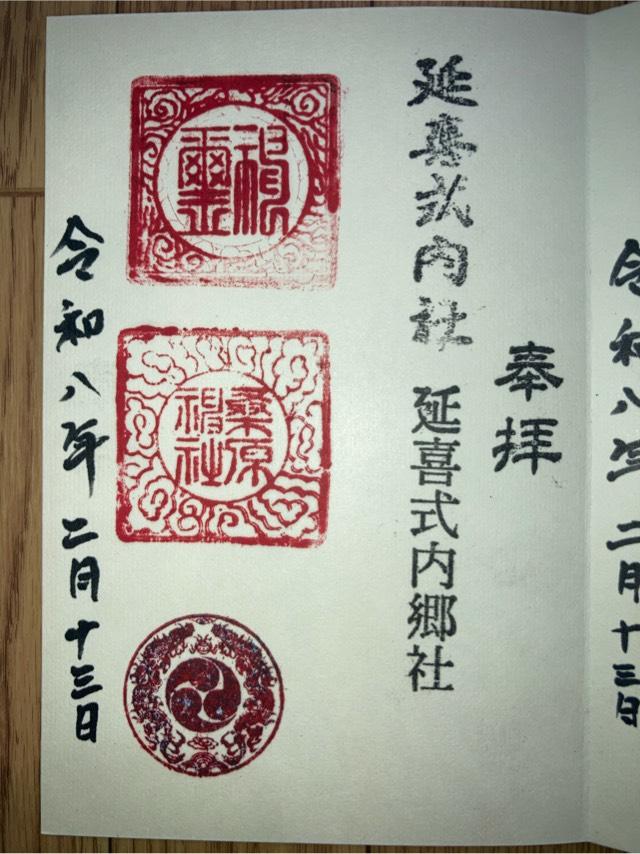 令和八年二月十三日
奉拝
延喜式内社 延喜式内郷社
桑原
神社
令和八年二月十三日